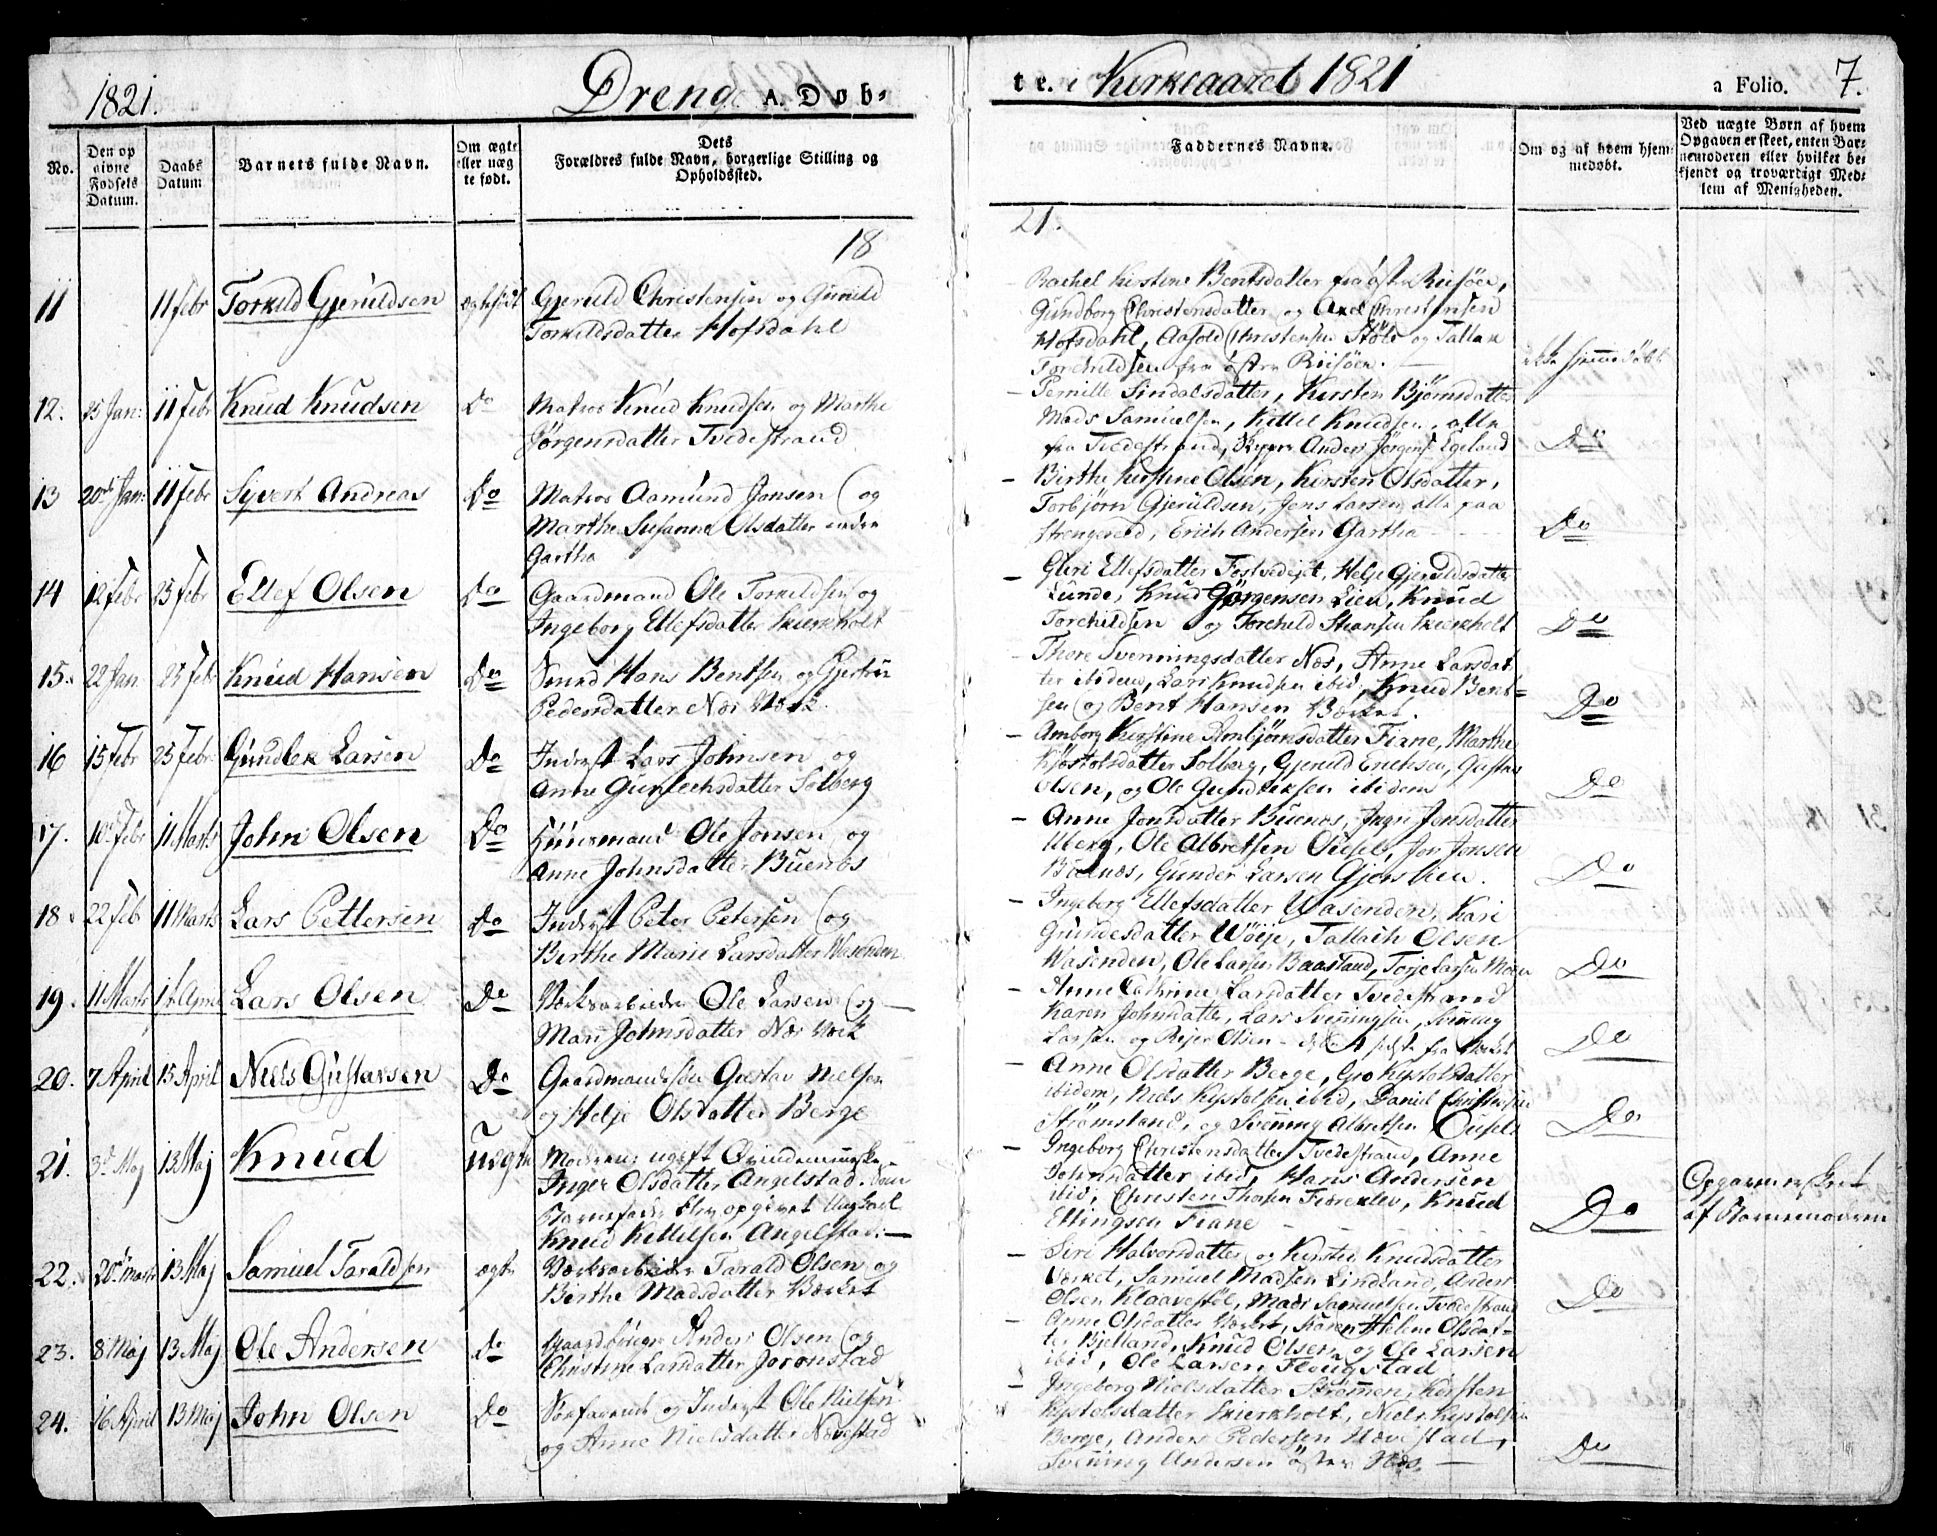 1821.
Drenge A. Døb-
te. i Kirkeaaret 1821
a Folio. 7.
No.
Den op
givne
Fødsels
Datum.
Daabs
Datum
Barnets fulde Navn.
Om ægte
eller uæg
te født.
Dets
Forældres fulde Navn, borgerlige Stilling og
Opholdssted.
Faddernes Navne.
Om og af hvem hjem-
medøbt.
Ved uægte Børn af hvem
Opgaven er skeet, enten Bar-
nemoderen eller hvilket be-
kjendt og troværdigt Med-
lem af Menigheden.
18
21.
11
11 febr
Torkild Gjeruldsen
Gjeruld Christensen og Gunild
Torkildsdatter Hofsdahl
Rachel Kirstine Bentsdatter fra östre Riisöer,
Gundborg Christensdatter og Axel Christensen
Hofsdahl, Aasold Christensen Stöle og Tallak
Torchildsen fra östre Riisöer.
ikke hjemmedöbt
12. 25 Jan: 11 Febr
Knud Knudsen
Do
Matros Knud Knudsen og Marthe
Jörgensdatter Tvedestrand
Pernille Sindalsdatter, Kirsten Bjørnsdatter
Mads Samuelsen, Kittel Knudsen, alle
fra Tvedestrand, Skipper Anders Jørgens. Egeland
Do
13 20de Jan: 11 Febr
Syvert Andreas
Do
Matros Aamund Jonsen og
Marthe Susanna Olsdatter
Gartha
Birthe Kirstine Olsen, Kirsten Olsdatter,
Torbjörn Gjeruldsen, Jens Larsen alle paa
Strengereid, Erich Andersen Gartha
Do
14 12 Febr 25 Febr
Ellef Olsen
Do
Gaardmand Ole Torkildsen og
Ingeborg Ellefsdatter Skierkholt
Ellefsdatter Helje Gjeruldsdatter
Lunde, Knud Jörgensen Lien, Knud
Torchildsen og Torchild Skierkholt
Do
15. 22 Jan 25 Febr
Knud Hansen
Do
Smed Hans Bentsen og Gjertru
Pedersdatter Næs Værk.
Thore Svenningsdatter Næs, Anne Larsdat-
ter ibidem, Lars Knudsen ibid, Knud Bent-
sen og Bent Hansen Værket.
Do
16 15 Febr 25 Febr
Gundlek Larsen
Do
Inderst Lars Johnsen og
Anne Gunlechsdatter Solberg
Kirstine Fiane, Marthe
Kjöstolsdatter Solberg, Gjeruld Erichsen, Gustav
Olsen, og Ole Gundleksen ibidem
Do
17. 10d Febr 11 Marts
John Olsen
Do
Huusmand Ole Jonsen og
Anne Johnsdatter Buenæs
Anne Jonsdatter Buenæs, Ingri Jensdatter
Uberg, Ole Albretsen Ousel, Jon Jonsen
Buenæs, Gunder Larsen Gjerslien.
Do
18. 22 Feb 11 Marts
Lars Pettersen
Do
Inderst Peter Petersen og
Berthe Marie Larsdatter Wasenden
Ingeborg Ellefsdatter Wasenden, Kari
Gundesdatter Wöije, Tallach Olsen
Wasenden, Ole Larsen Baastand, Torje Larsen Moen
Do
19. 11 Marts 1st April
Lars Olsen
Do
Værksarbeider Ole Larsen og
Mari Johnsdatter Næs Værk
Anne Cathrine Larsdatter Tvedestrand
Karen Johnsdatter, Lars Svenningsen, Svenning
Larsen og Reier Olsen fra Værket
Do
20. 7 April 15 April
Niels Gustavsen
Do
Gaardmandssön Gustav Nielsen
og Helje Olsdatter Berge
Anne Olsdatter Berge, Gro Kystolsdatter
ibidem, Niels Kystolsen ibid, Daniel Christensen
Strömsland, og Svenning Albretsen Ousel
Do
21. 3d Maj 13 Maj
Knud
Uægte
Moderen: ugift Qvindemenneske
Inger Olsdatter Angelstad. Som
Barnefader blev opgivet Ungkarl
Knud Kittelsen Angelstad.
Ingeborg Christensdatter Tvedestrand, Anne
Johnsdatter ibid, Hans Andersen
ibid, Christen Fiane, Knud
Ellingsen Fiane
Do
Opgaven er skeet
af Barnemoderen
22. 20de Marts 13 Maj
Samuel Taraldsen
ægte
Værksarbeider Tarald Olsen og
Berthe Madsdatter Værket
Siri Halvorsdatter og Kirsten Knudsdatter
Værket, Samuel Madsen Lindland, Anders
Olsen Klaavestöl, Mads Samuelsen Tvedestrand
Do
23. 8 Maj 13 Maj
Ole Andersen
do
Gaardbruger Anders Olsen og
Christine Larsdatter Joronstad
Anne Olsdatter Værket, Karen Helene Olsdat-
ter Bjelland, Knud Olsen og Ole Larsen
ibid, Ole Larsen Flougstad
24. 16 April 13 Maj
John Olsen
Do
Söefarende og Inderst Ole Nielsen
og Anne Nielsdatter Nævestad
Ingeborg Nielsdatter Strømmen, Kirsten
Kystolsdatter Skierkholt, Niels Kystolsen
Berge, Anders Pedersen Nævestad,
Svenning Andersen östre Næs
Do